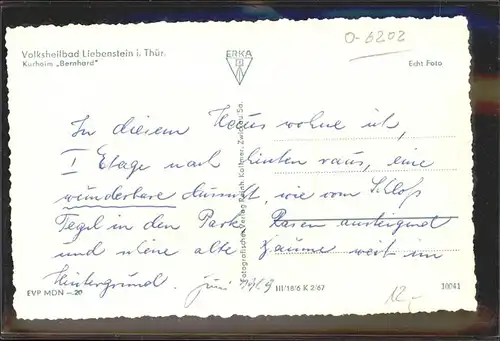 Volksheilbad Liebenstein i. Thür.
Kurheim „Bernhard"
ERKA
O-6202
Echt Foto
In diesem Haus wohne ich,
I Etage nach hinten raus, eine
wunderbare Aussicht, wie vom Schloß
Tegel in den Park. Rasen ansteigend
und schöne alte Bäume weit im
Hintergrund. Juni 1969
Fotografischer Verlag Reich. Kallmer, Zwickau Sa.
EVP MDN —.20
III/18/6 K 2/67
10041
12,-